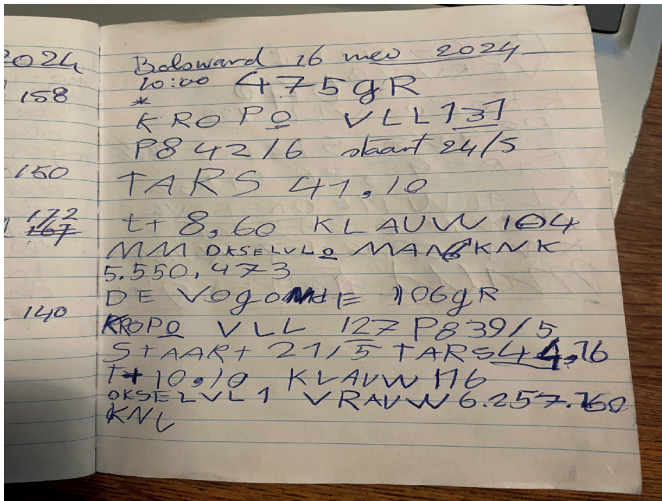 2024
158
150
172
167
140
Bolsward 16 mei 2024
20:00 475gR
*
KROPO VLL 131
P8 42/6 staart 24/5
TARS 41,10
t+ 8,60 KLAUW 104
MM OKSELVLO MAN KNK
5.550,473
DE VOgO 106gR
KROPO VLL 127 P8 39/5
STAART 21/5 TARS 44,16
T+ 10,10 KLAUW 116
OKSELVL1 VRAUW 6.257.160
KNL